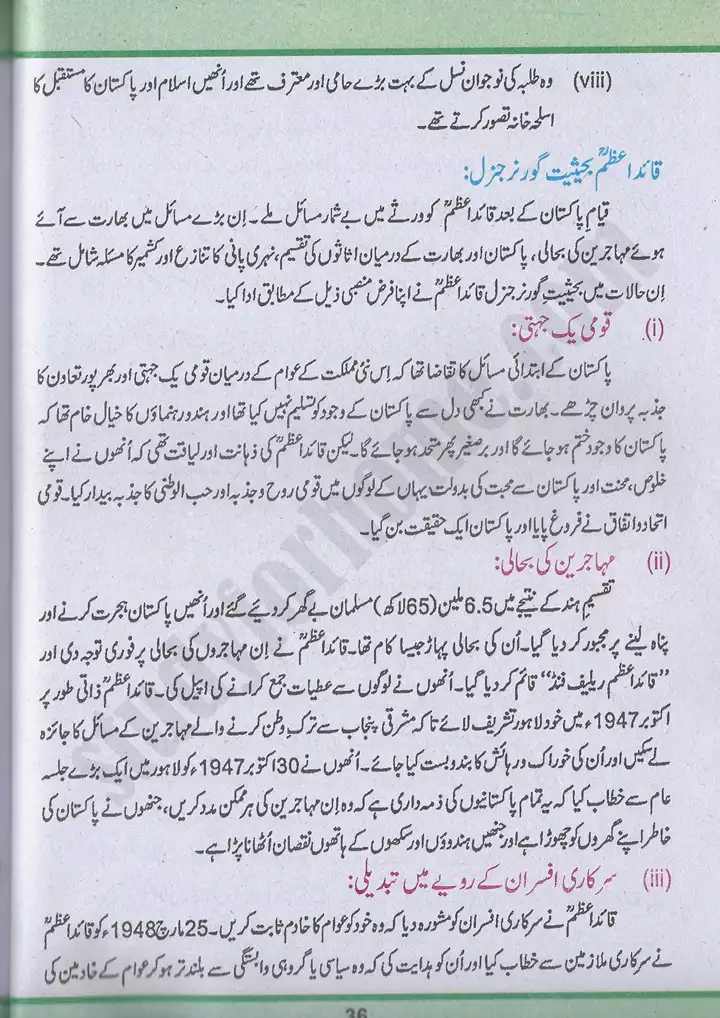 (viii) وہ طلبہ کی نوجوان نسل کے بہت بڑے حامی اور معترف تھے اور اُنھیں اسلام اور پاکستان کا مستقبل کا
اسلحہ خانہ تصور کرتے تھے۔
قائداعظمؒ بحیثیت گورنر جنرل:
قیامِ پاکستان کے بعد قائداعظمؒ کو ورثے میں بے شمار مسائل ملے۔ اِن بڑے مسائل میں بھارت سے آئے
ہوئے مہاجرین کی بحالی، پاکستان اور بھارت کے درمیان اثاثوں کی تقسیم، نہری پانی کا تنازع اور کشمیر کا مسئلہ شامل تھے۔
اِن حالات میں بحیثیتِ گورنر جنرل قائداعظمؒ نے اپنا فرض منصبی ذیل کے مطابق ادا کیا۔
(i) قومی یک جہتی:
پاکستان کے ابتدائی مسائل کا تقاضا تھا کہ اِس نئی مملکت کے عوام کے درمیان قومی یک جہتی اور بھرپور تعاون کا
جذبہ پروان چڑھے۔ بھارت نے کبھی دل سے پاکستان کے وجود کو تسلیم نہیں کیا تھا اور ہندو رہنماؤں کا خیال خام تھا کہ
پاکستان کا وجود ختم ہو جائے گا اور برصغیر پھر متحد ہو جائے گا۔ لیکن قائداعظمؒ کی ذہانت اور لیاقت تھی کہ اُنھوں نے اپنے
خلوص، محنت اور پاکستان سے محبت کی بدولت یہاں کے لوگوں میں قومی روح و جذبہ اور حب الوطنی کا جذبہ بیدار کیا۔ قومی
اتحاد و اتفاق نے فروغ پایا اور پاکستان ایک حقیقت بن گیا۔
(ii) مہاجرین کی بحالی:
تقسیمِ ہند کے نتیجے میں 6.5 ملین (65 لاکھ) مسلمان بے گھر کر دیئے گئے اور اُنھیں پاکستان ہجرت کرنے اور
پناہ لینے پر مجبور کر دیا گیا۔ اُن کی بحالی پہاڑ جیسا کام تھا۔ قائداعظمؒ نے اِن مہاجروں کی بحالی پر فوری توجہ دی اور
”قائداعظم ریلیف فنڈ“ قائم کر دیا گیا۔ اُنھوں نے لوگوں سے عطیات جمع کرانے کی اپیل کی۔ قائداعظمؒ ذاتی طور پر
اکتوبر 1947ء میں خود لاہور تشریف لائے تاکہ مشرقی پنجاب سے ترکِ وطن کرنے والے مہاجرین کے مسائل کا جائزہ
لے سکیں اور اُن کی خوراک و رہائش کا بندوبست کیا جائے۔ اُنھوں نے 30 اکتوبر 1947ء کو لاہور میں ایک بڑے جلسہ
عام سے خطاب کیا کہ یہ تمام پاکستانیوں کی ذمہ داری ہے کہ وہ اِن مہاجرین کی ہر ممکن مدد کریں، جنھوں نے پاکستان کی
خاطر اپنے گھروں کو چھوڑا ہے اور جنھیں ہندوؤں اور سکھوں کے ہاتھوں نقصان اُٹھانا پڑا ہے۔
(iii) سرکاری افسران کے رویے میں تبدیلی:
قائداعظمؒ نے سرکاری افسران کو مشورہ دیا کہ وہ خود کو عوام کا خادم ثابت کریں۔ 25 مارچ 1948ء کو قائداعظمؒ
نے سرکاری ملازمین سے خطاب کیا اور اُن کو ہدایت کی کہ وہ سیاسی یا گروہی وابستگی سے بلند تر ہو کر عوام کے خادمین کی
36
studyforhome.com